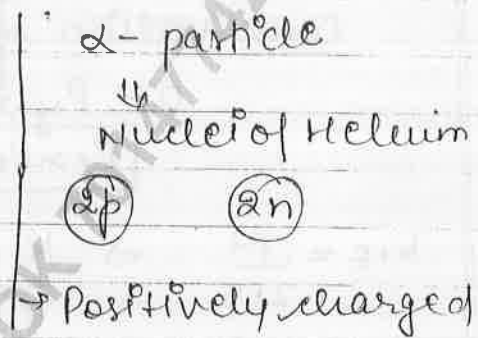 α - particle
⇓
Nuclei of Helium
2p 2n
→ Positively charged